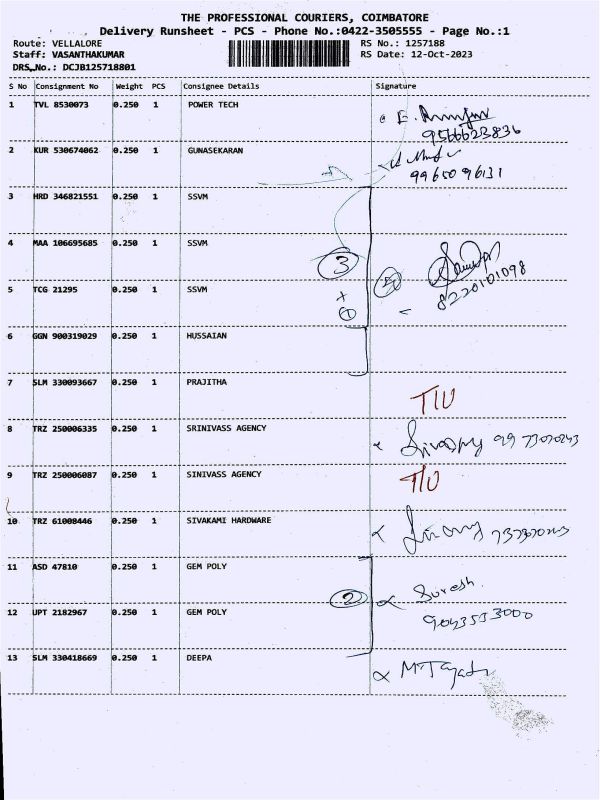 THE PROFESSIONAL COURIERS, COIMBATORE
Delivery Runsheet - PCS - Phone No.:0422-3505555 - Page No.:1
Route: VELLALORE RS No.: 1257188
Staff: VASANTHAKUMAR RS Date: 12-Oct-2023
DRS No.: DCJB125718801
S No Consignment No Weight PCS Consignee Details Signature
1 TVL 8530073 0.250 1 POWER TECH
9566623836
2 KUR 530674062 0.250 1 GUNASEKARAN
9965096131
3 HRD 346821551 0.250 1 SSVM
4 MAA 106695685 0.250 1 SSVM
3
5 TCG 21295 0.250 1 SSVM
8220101098
+
1
6 GGN 900319029 0.250 1 HUSSAIAN
7 SLM 330093667 0.250 1 PRAJITHA
T/U
8 TRZ 250006335 0.250 1 SRINIVASS AGENCY
9 TRZ 250006087 0.250 1 SINIVASS AGENCY
T/U
10 TRZ 61008446 0.250 1 SIVAKAMI HARDWARE
11 ASD 47810 0.250 1 GEM POLY
2 Suresh.
12 UPT 2182967 0.250 1 GEM POLY
9043533000
13 SLM 330418669 0.250 1 DEEPA